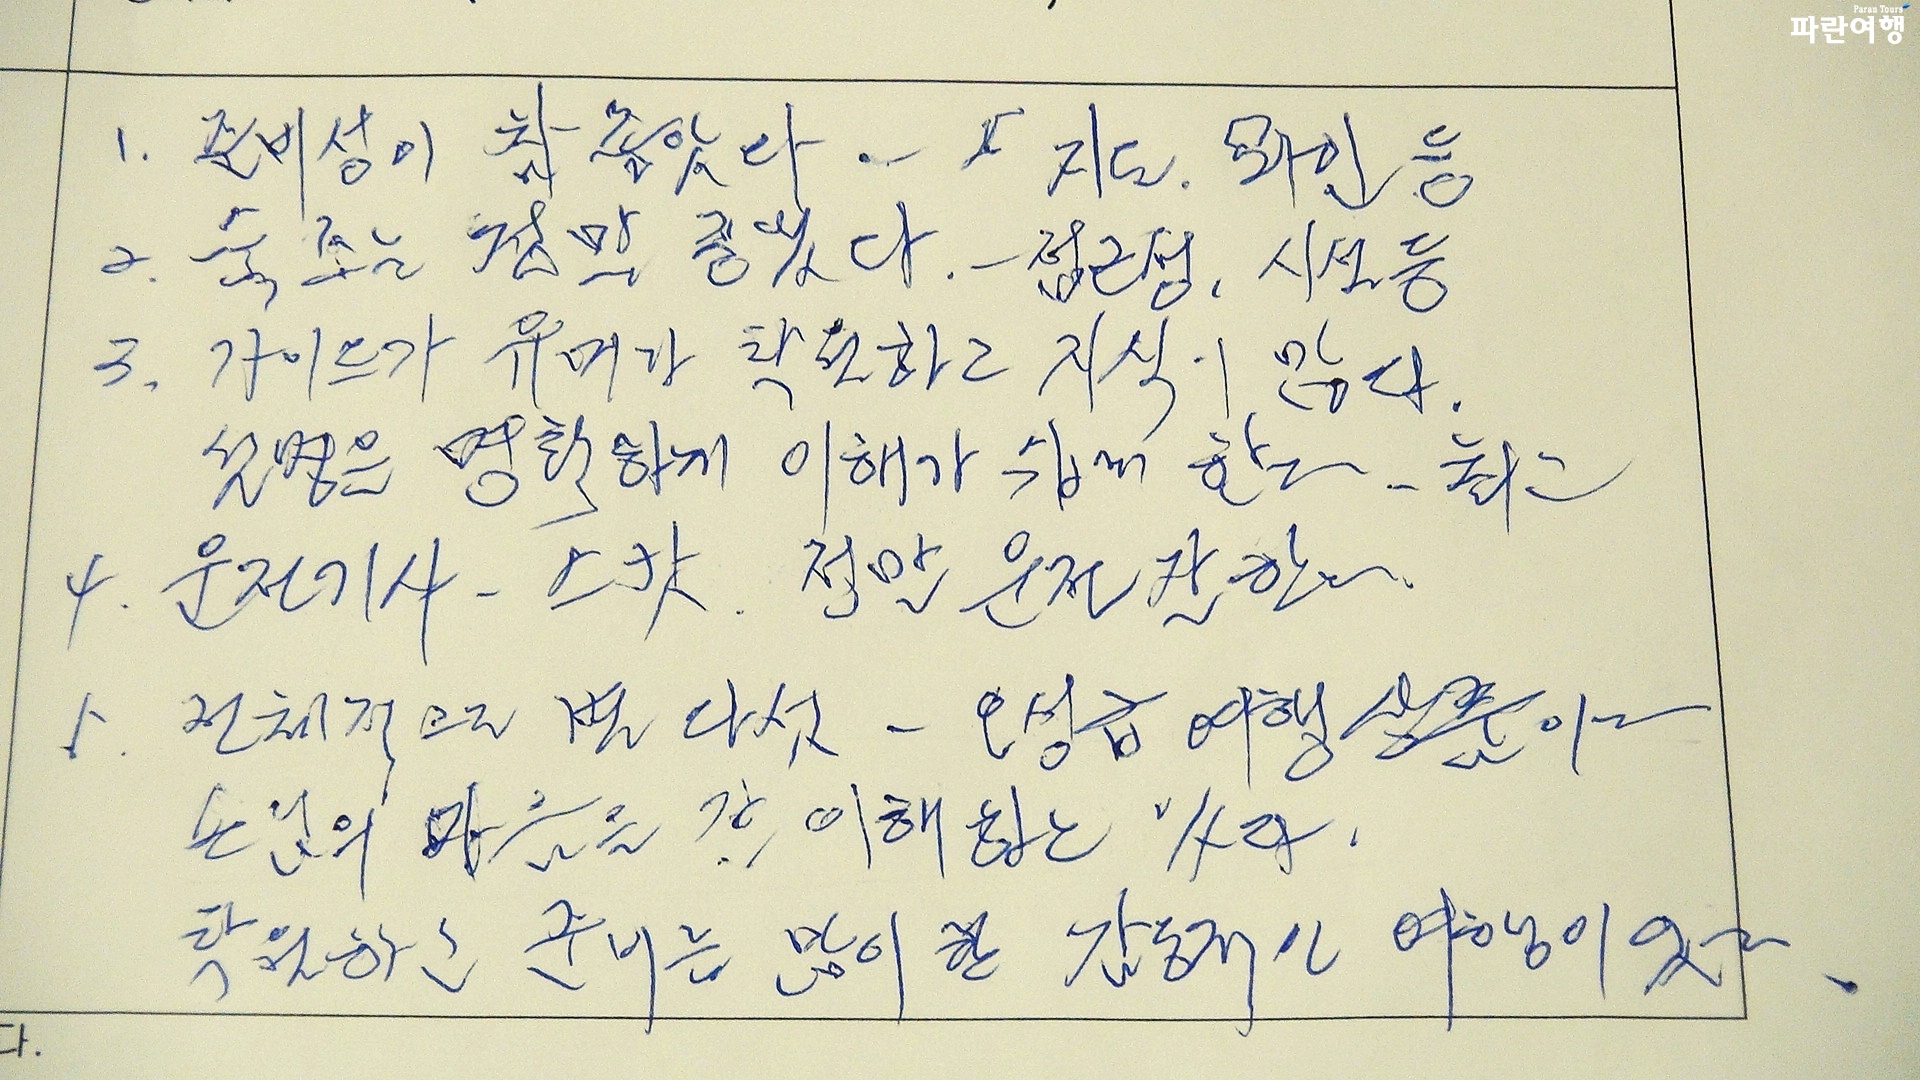 Paran Tours
파란여행
1. 준비성이 참 좋았다. - 지도. 와인 등
2. 숙소는 정말 좋았다. - 접근성, 시설 등
3. 가이드가 유머가 탁월하고 지식이 많다.
설명은 명확하게 이해가 쉽게 한다 - 최고
4. 운전기사 - 스캇. 정말 운전 잘한다.
5. 전체적으로 별 다섯 - 오성급 여행상품이다
손님의 마음을 잘 이해하는
탁월하고 준비를 많이 한 감동적인 여행이었다.
다.